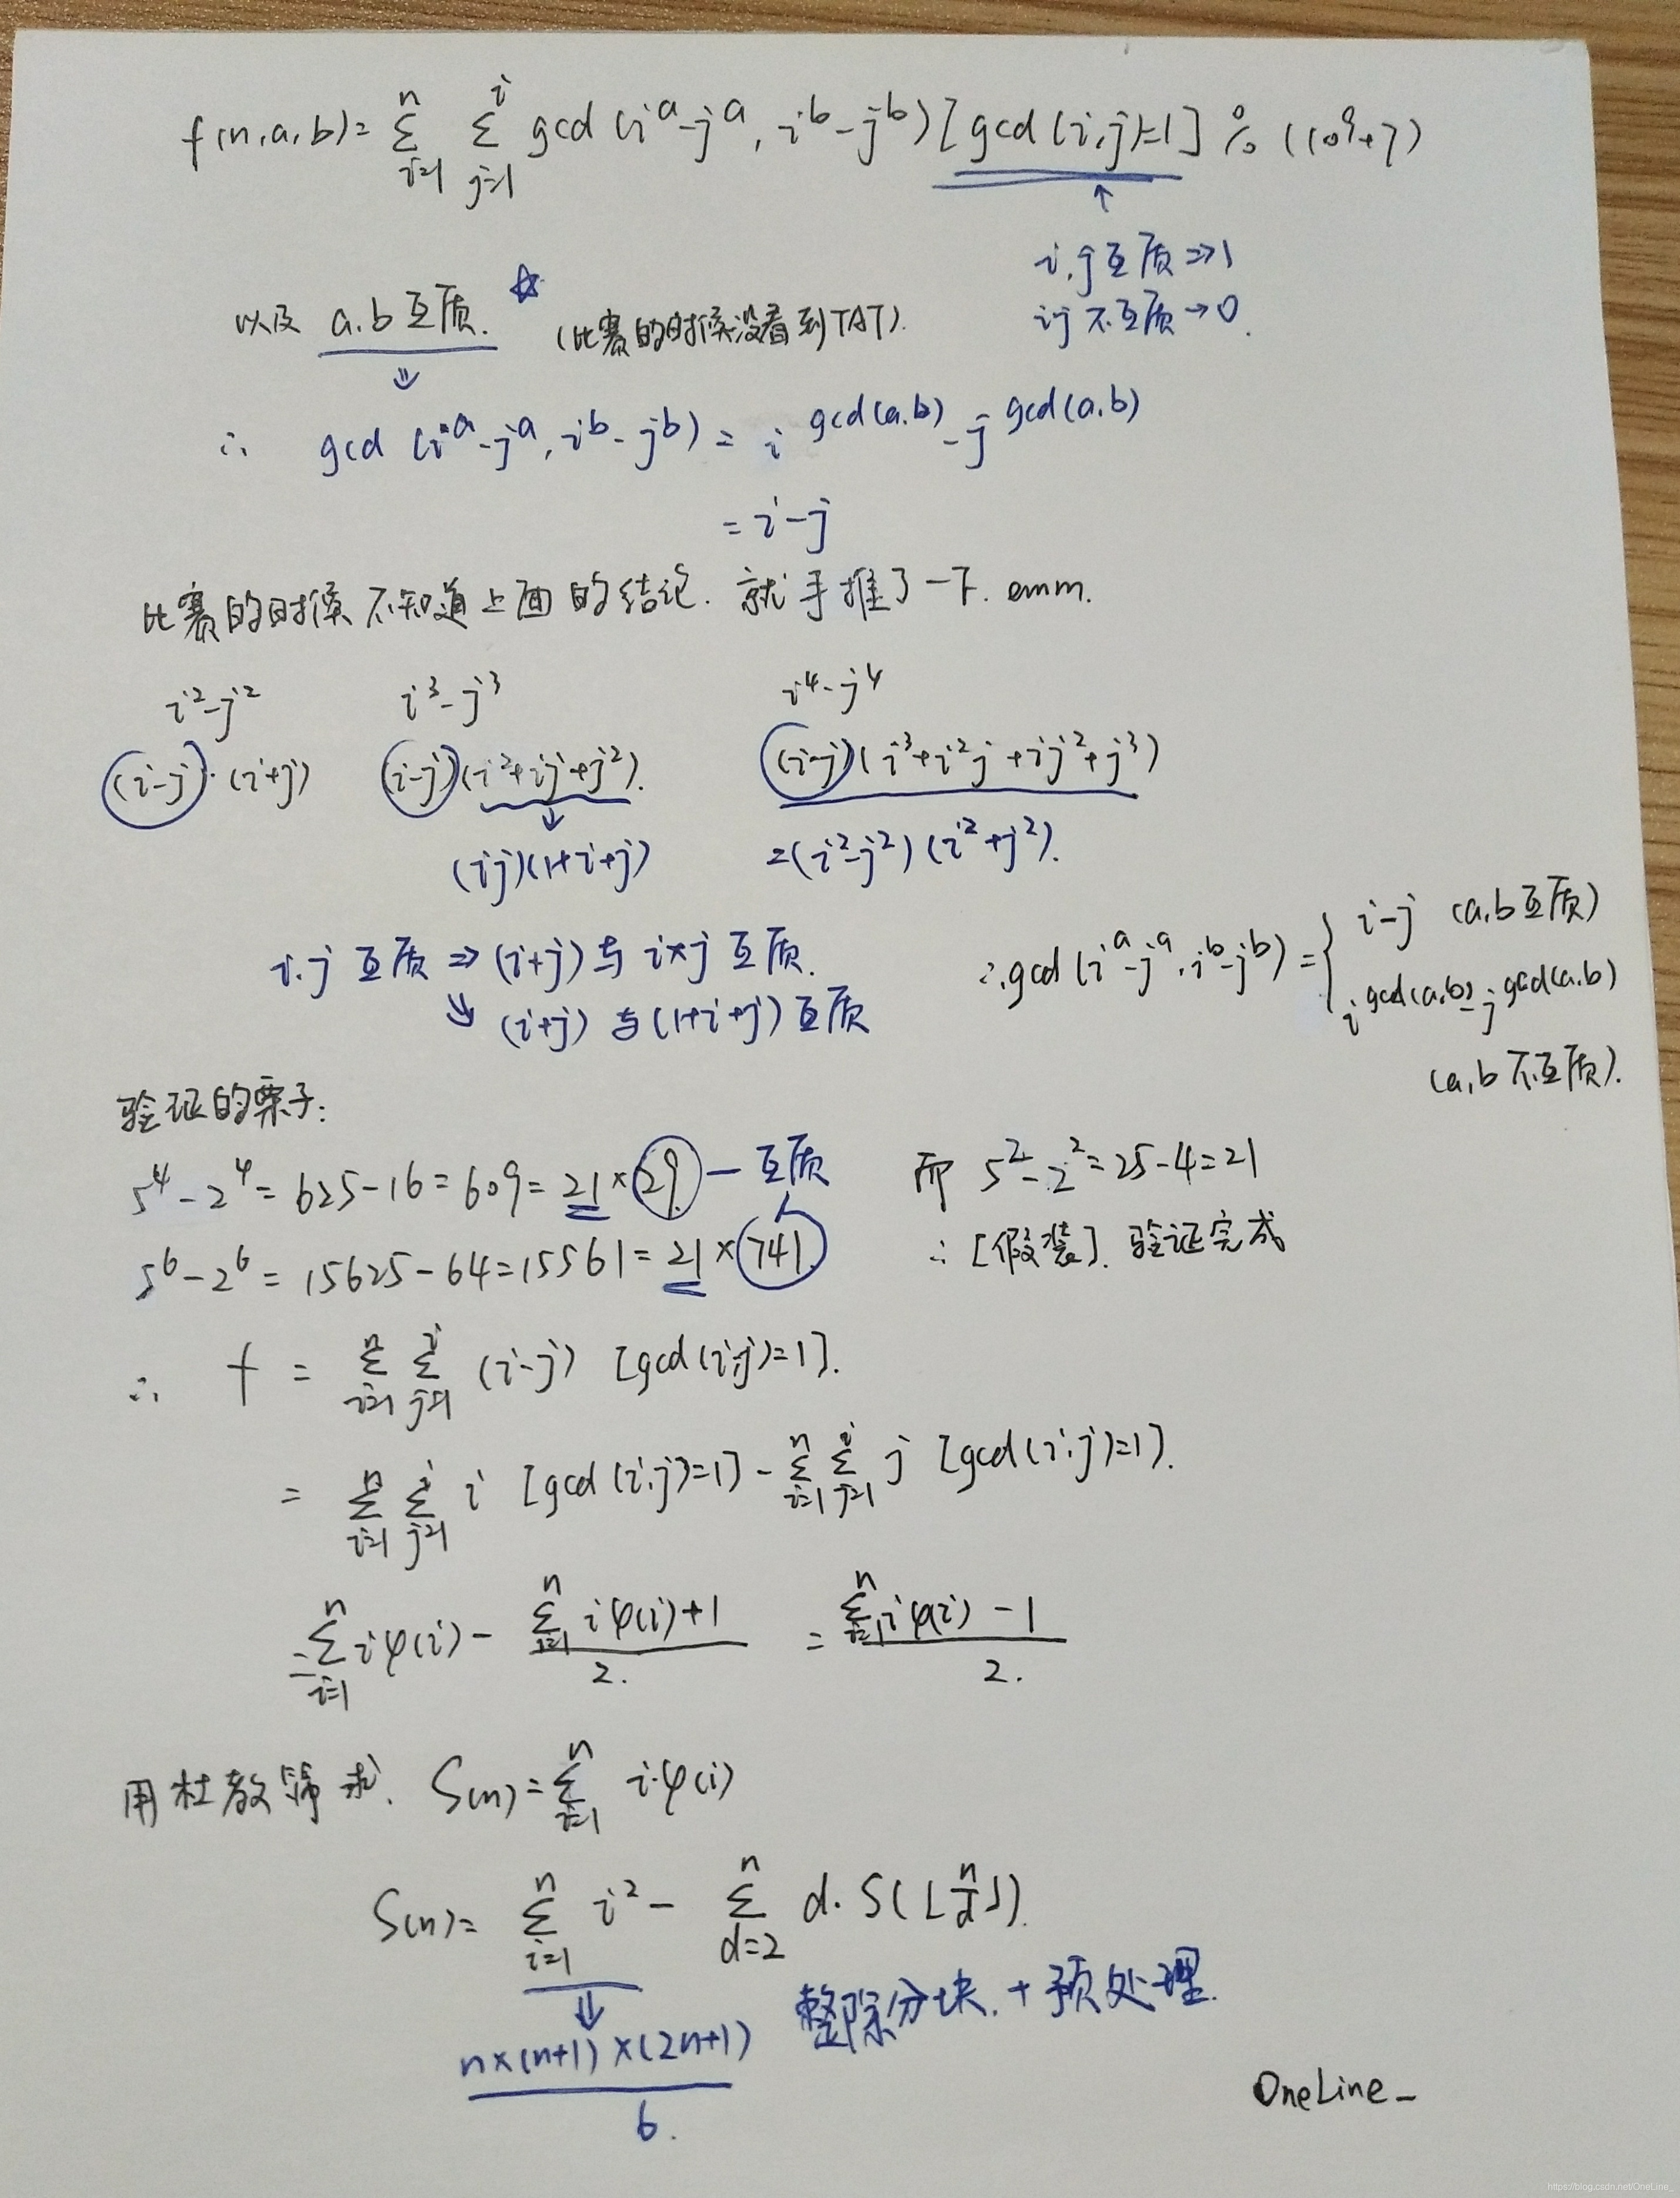 f(n,a,b)= Σ_{i=1}^{n} Σ_{j=1}^{i} gcd(i^a-j^a, i^b-j^b)[gcd(i,j)=1] % (10^9+7)
↑
i,j互质⇒1
ij不互质→0.
以及 a,b互质. ☆ (比赛的时候没看到TAT).
⇓
∴ gcd(i^a-j^a, i^b-j^b) = i^{gcd(a,b)} - j^{gcd(a,b)}
= i-j
比赛的时候不知道上面的结论. 就手推了一下. emm.
i²-j² i³-j³ i⁴-j⁴
(i-j)·(i+j) (i-j)(i²+ij+j²). (i-j)(i³+i²j+ij²+j³)
↓
(ij)(1+i+j) =(i²-j²)(i²+j²).
i,j 互质 ⇒ (i+j) 与 i×j 互质.
⇓ (i+j) 与 (1+i+j) 互质
∴gcd(i^a-j^a, i^b-j^b) = { i-j (a,b互质)
i^{gcd(a,b)}-j^{gcd(a,b)}
(a,b不互质).
验证的栗子:
5⁴-2⁴=625-16=609=21×29. — 互质 而 5²-2²=25-4=21
5⁶-2⁶=15625-64=15561=21×741. ∴[假装]. 验证完成
∴ f = Σ_{i=1}^{n} Σ_{j=1}^{i} (i-j) [gcd(i,j)=1].
= Σ_{i=1}^{n} Σ_{j=1}^{i} i [gcd(i,j)=1] - Σ_{i=1}^{n} Σ_{j=1}^{i} j [gcd(i,j)=1].
= Σ_{i=1}^{n} iφ(i) - (Σ_{i=1}^{n} iφ(i)+1)/2. = (Σ_{i=1}^{n} iφ(i) -1)/2.
用杜教筛求. S(n)= Σ_{i=1}^{n} i·φ(i)
S(n)= Σ_{i=1}^{n} i² - Σ_{d=2}^{n} d·S(⌊n/d⌋).
⇓ 整除分块.+预处理.
n×(n+1)×(2n+1)/6.
OneLine_
https://blog.csdn.net/OneLine_